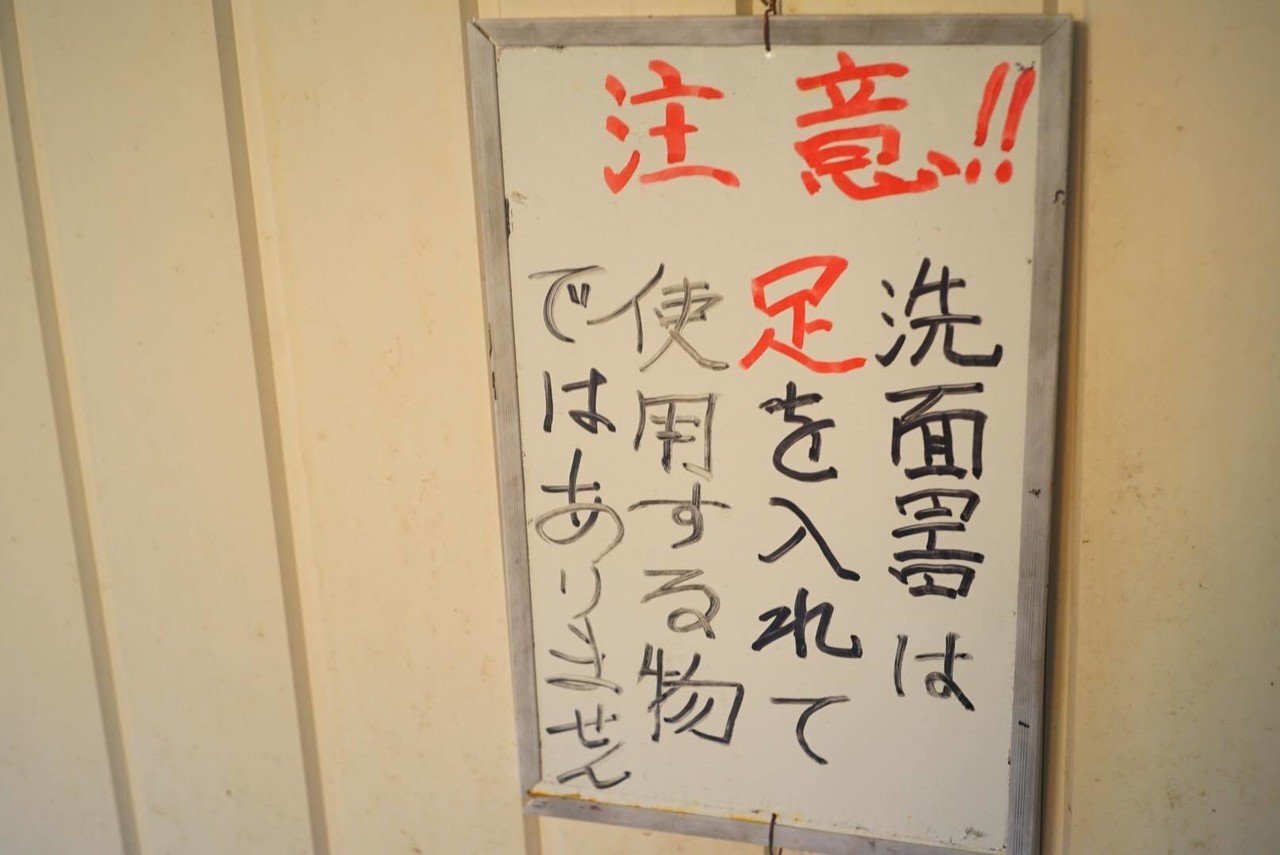 注意!!
洗面器は
足を入れて
使用する物
ではありません